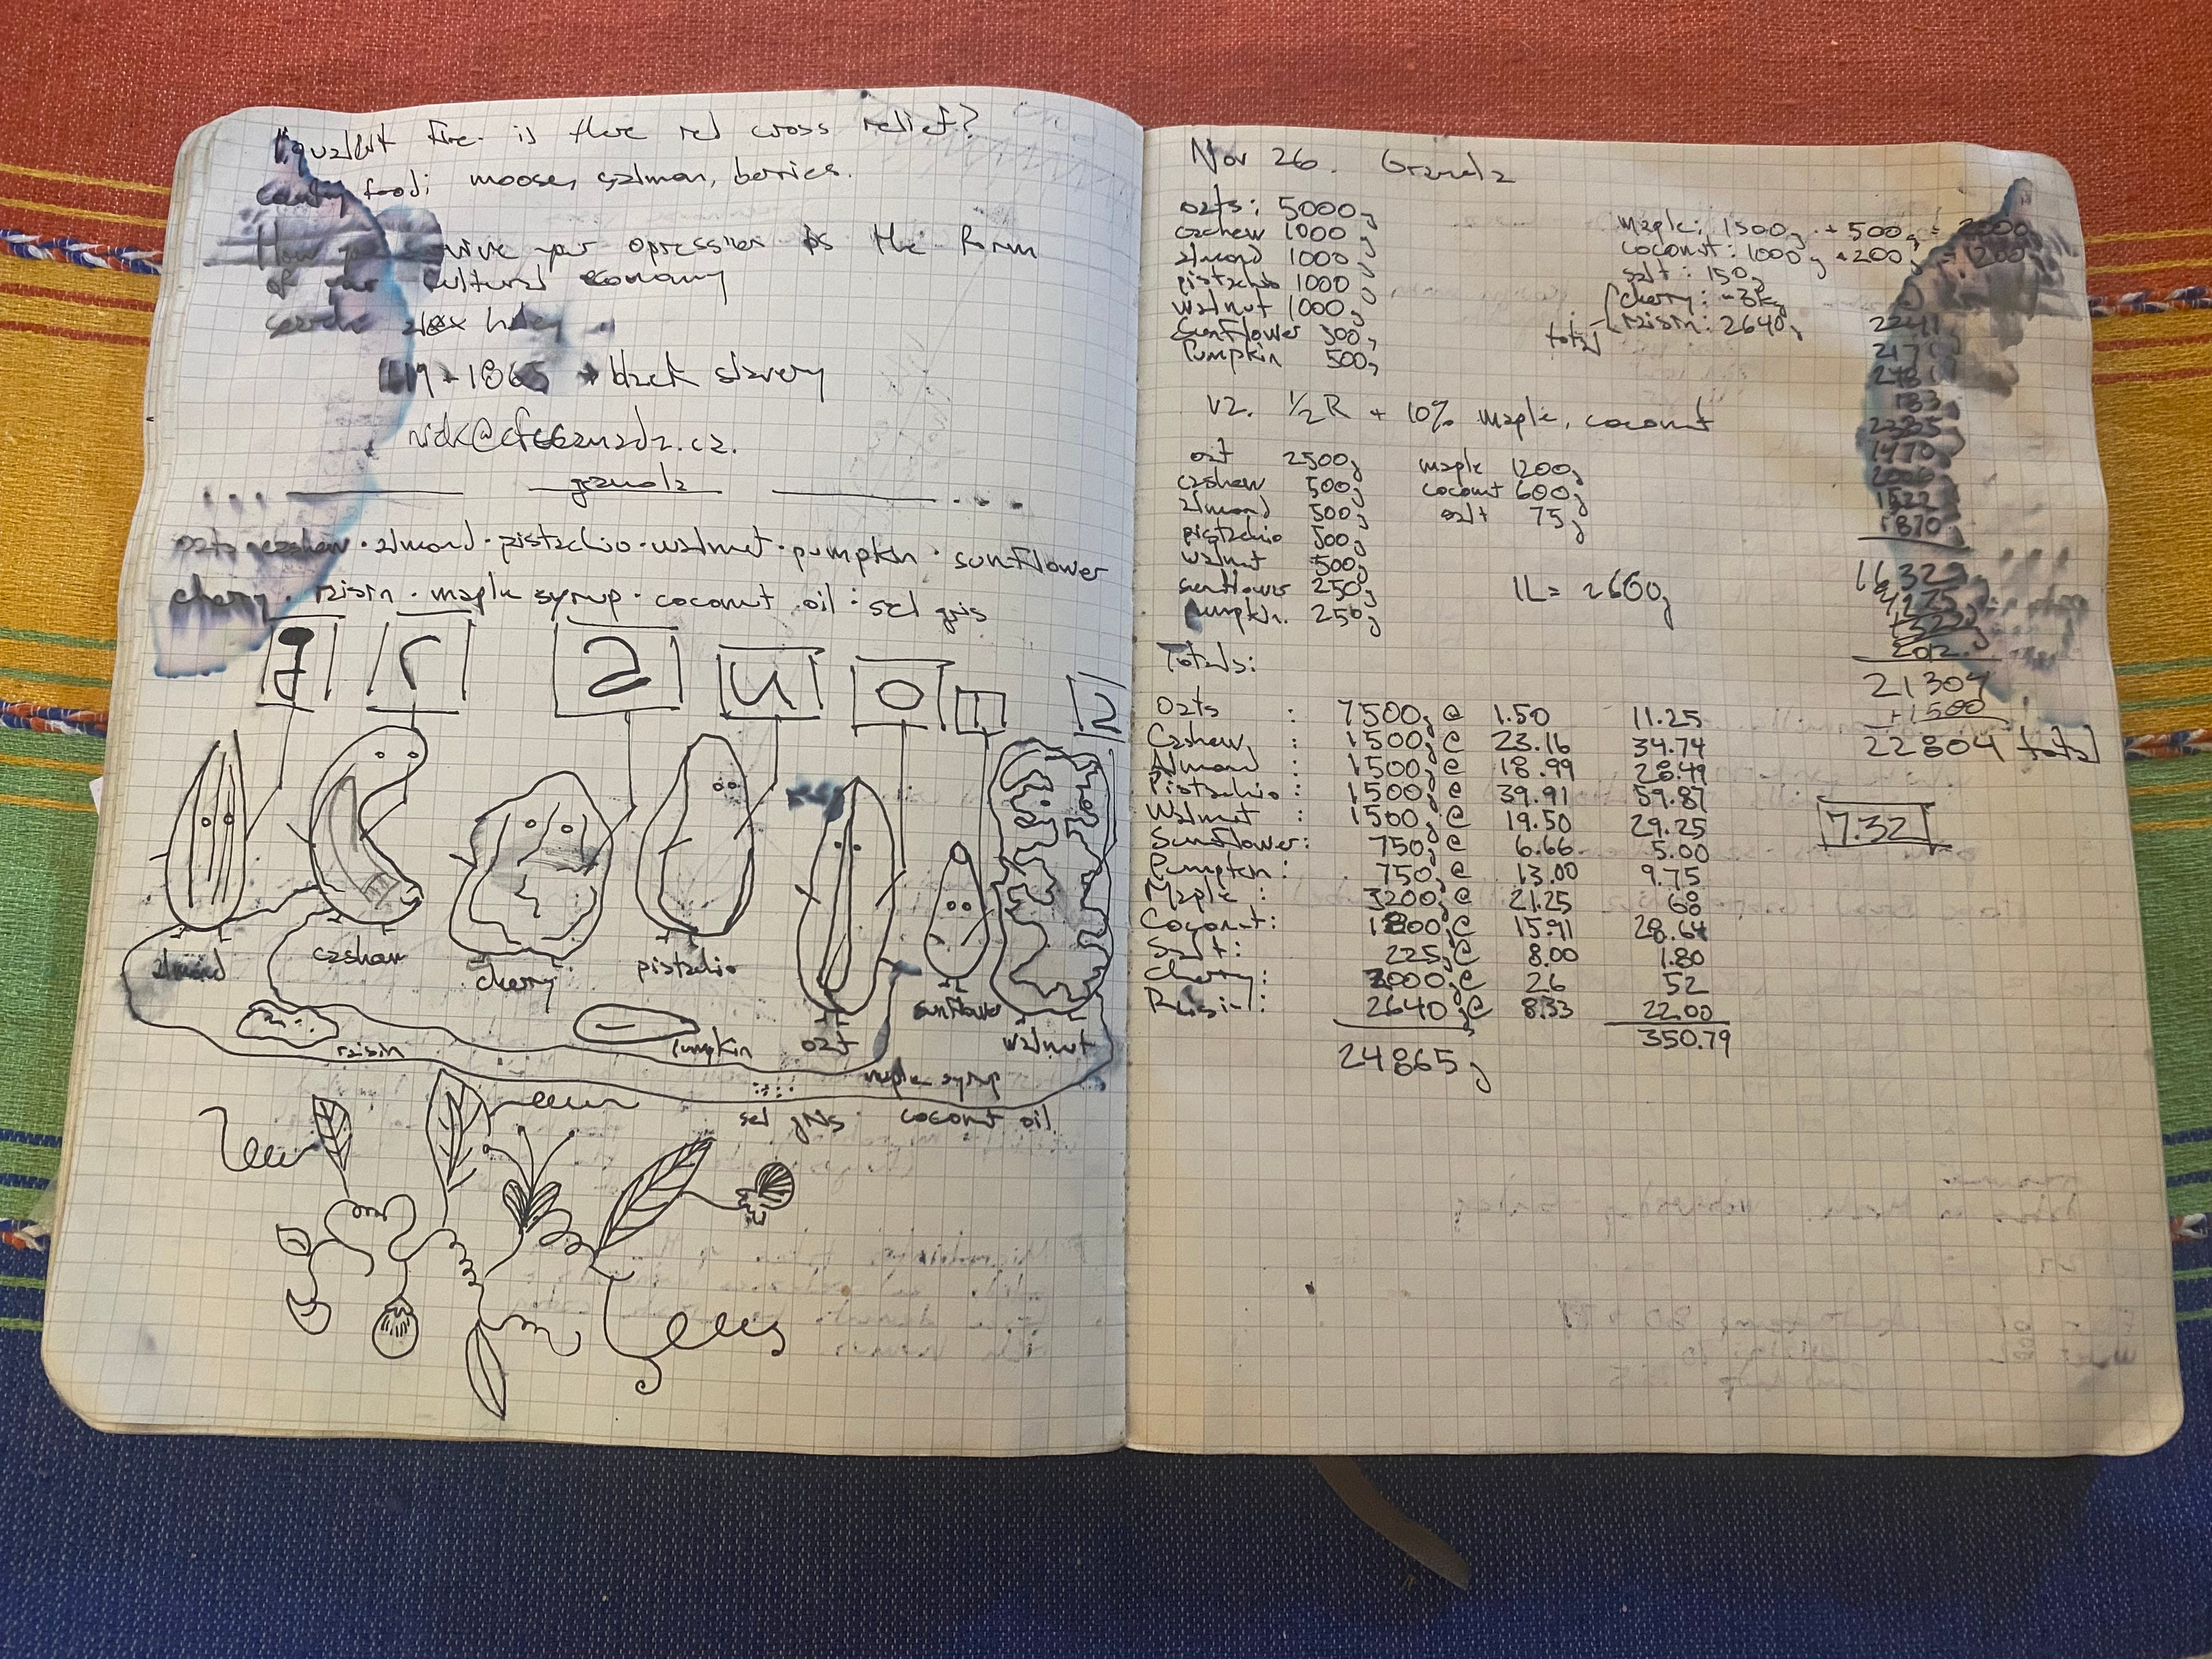 fire. is there red cross relief?
country food: moose, salmon, berries.
How you survive your opression is the form
of your cultural economy
search: alex haley
1619-1865 → black slavery
granola
oats cashew · almond · pistachio · walnut · pumpkin · sunflower
cherry · raisin · maple syrup · coconut oil · sel gris
g r a u o n a
almond cashew cherry pistachio oat sunflower walnut
raisin pumpkin
maple syrup
sel gris coconut oil
Nov 26. Granola
oats: 5000g
cashew 1000g
almond 1000g
pistachio 1000
walnut 1000g
sunflower 500g
Pumpkin 500g
maple: 1500g + 500g = 2000
coconut: 1000g + 200g = 1200
salt: 150g
cherry: ~3kg
raisin: 2640g
total
V2. 1/2 R + 10% maple, coconut
oat 2500g
cashew 500g
almond 500g
pistachio 500g
walnut 500g
sunflower 250g
pumpkin. 250g
maple 1200g
coconut 600g
salt 75g
1L = 2660g
2241
2171
2481
183
2385
1470
2006
1522
1870
16329
21304
+1500
22804 total
7.32
Totals:
Oats : 7500g @ 1.50 11.25
Cashew : 1500g @ 23.16 34.74
Almond : 1500g @ 18.99 28.49
Pistachio : 1500g @ 39.91 59.87
Walnut : 1500g @ 19.50 29.25
Sunflower: 750g @ 6.66 5.00
Pumpkin : 750g @ 13.00 9.75
Maple : 3200g @ 21.25 68
Coconut: 1800g @ 15.91 28.64
Salt: 225g @ 8.00 1.80
Cherry: 2000g @ 26 52
Raisin: 2640g @ 8.33 22.00
24865g 350.79